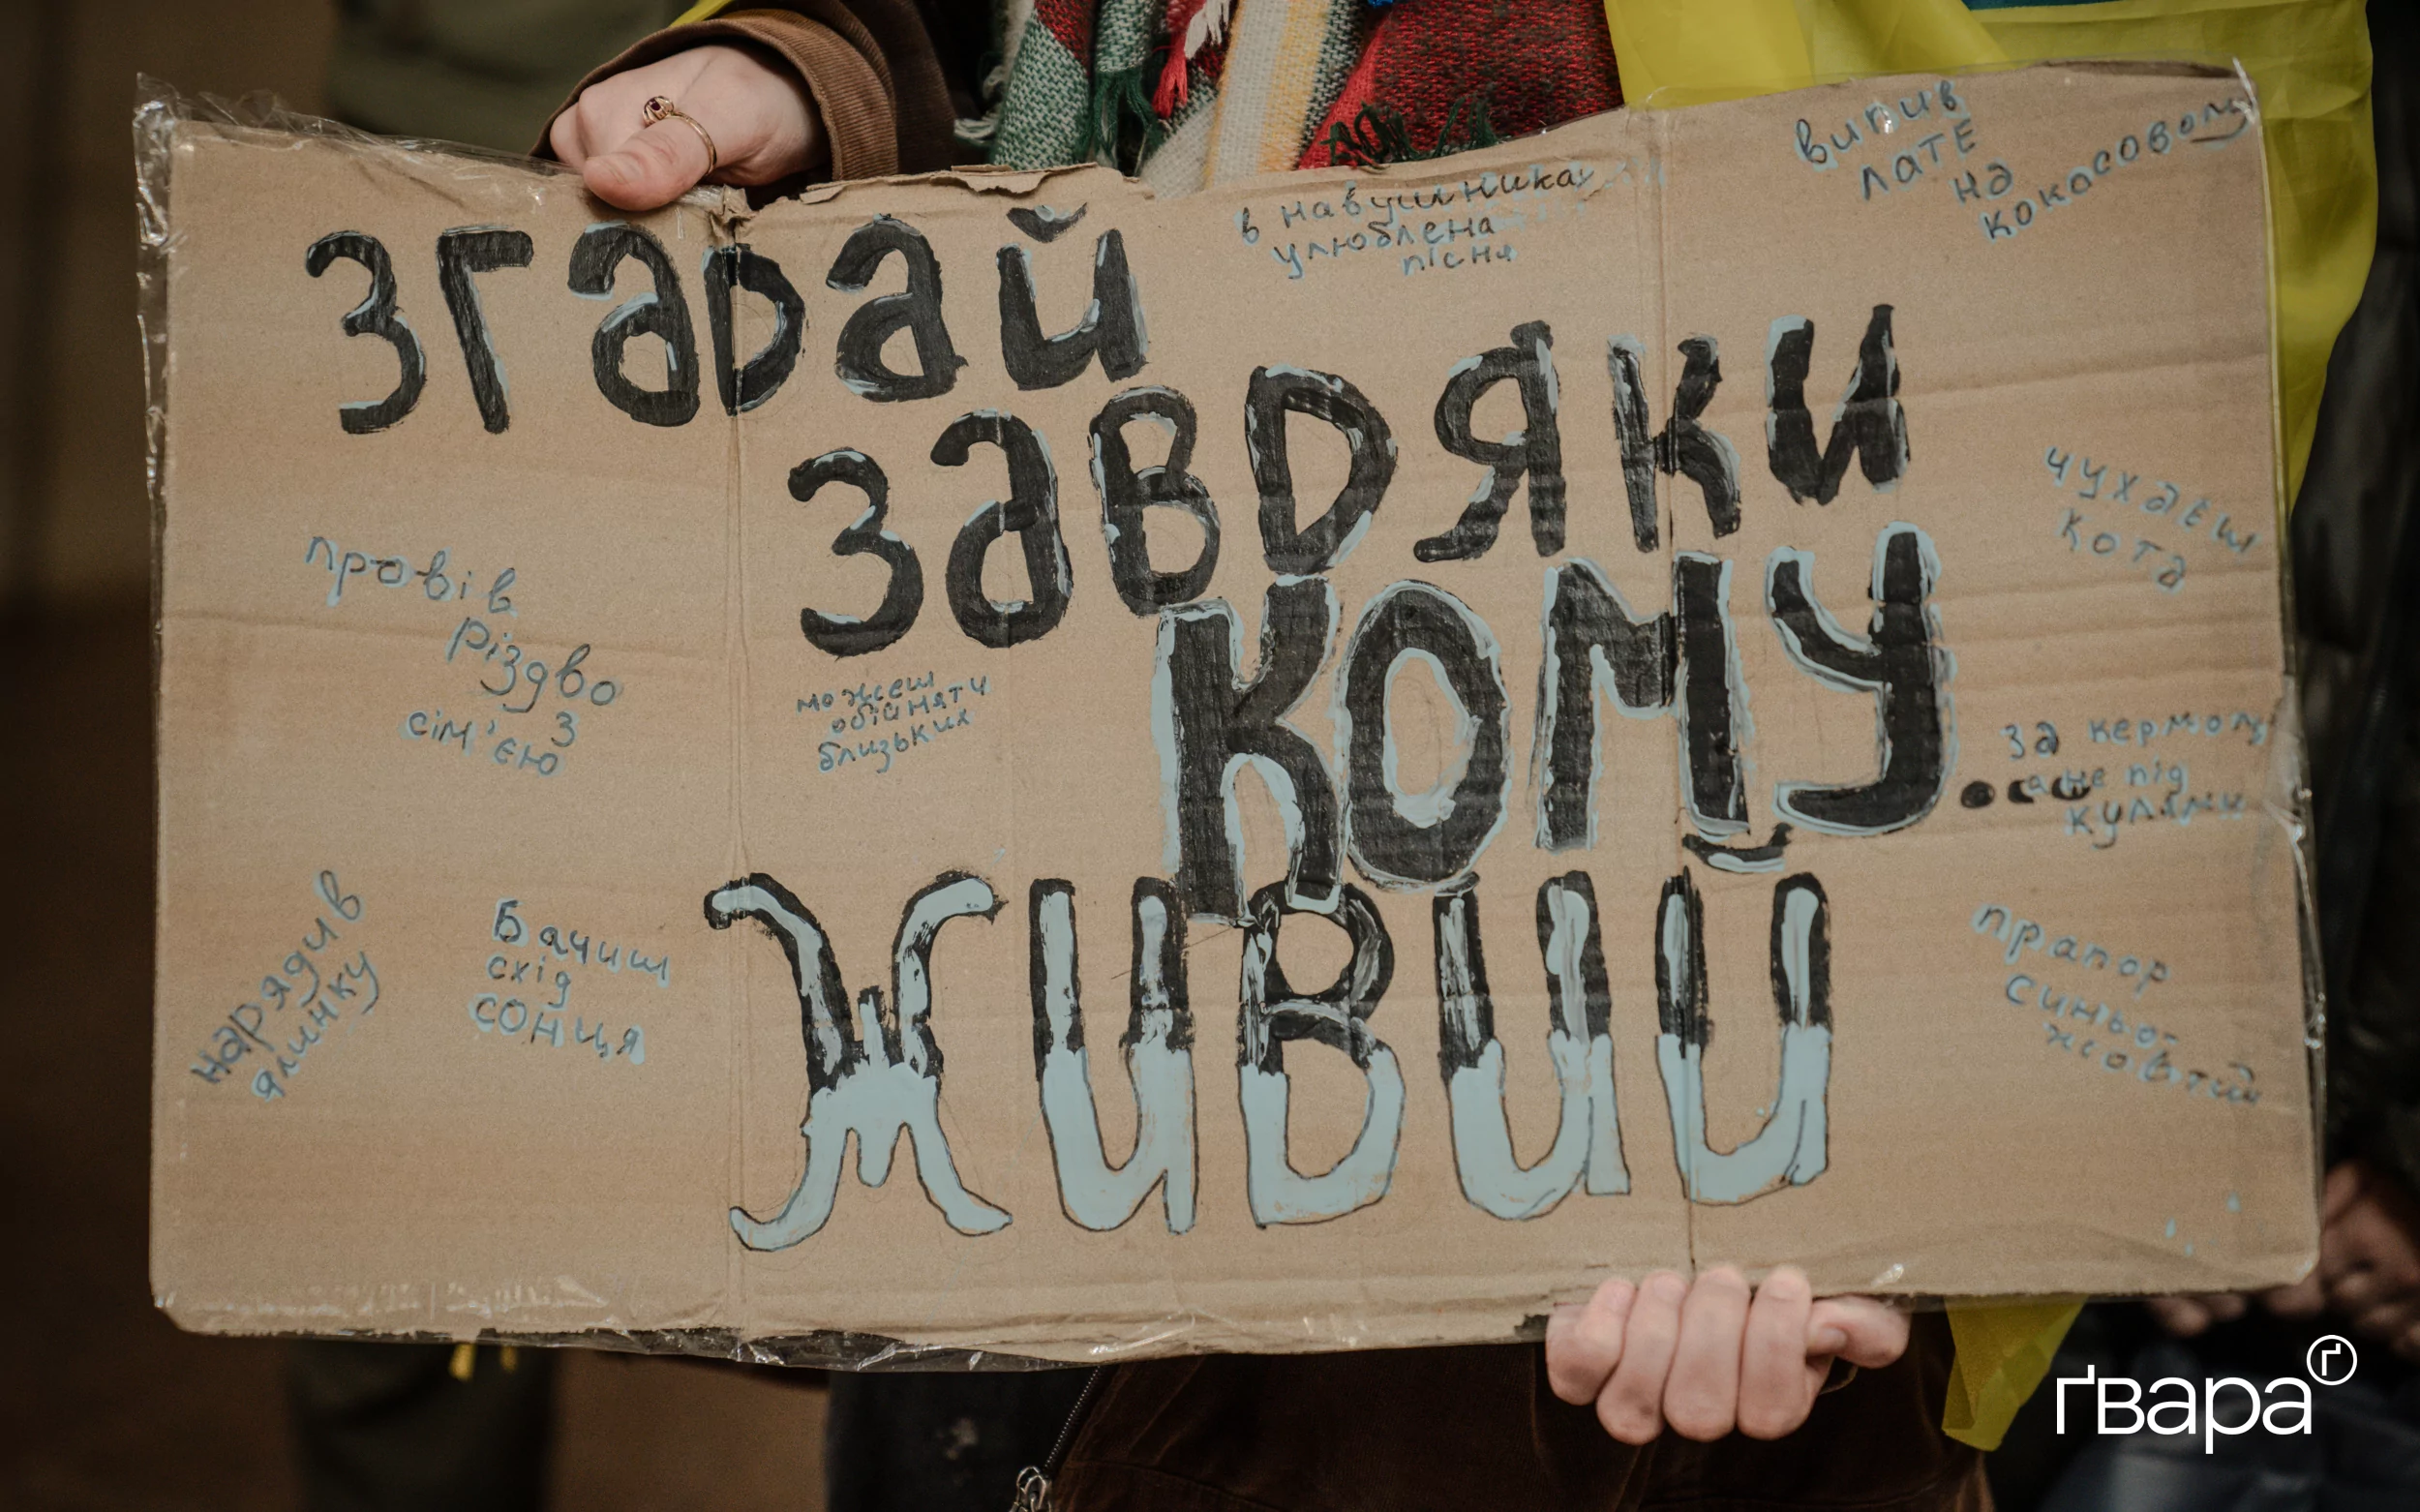 згадай
завдяки
кому...
живий
в навушниках
улюблена
пісня
випив
лате
на
кокосовому
чухаєш
кота
за кермом
а не під
кулями
прапор
синьо-
жовтий
провів
різдво
з
сім'єю
можеш
обійняти
близьких
нарядив
ялинку
Бачиш
схід
сонця
ґвара
ґ